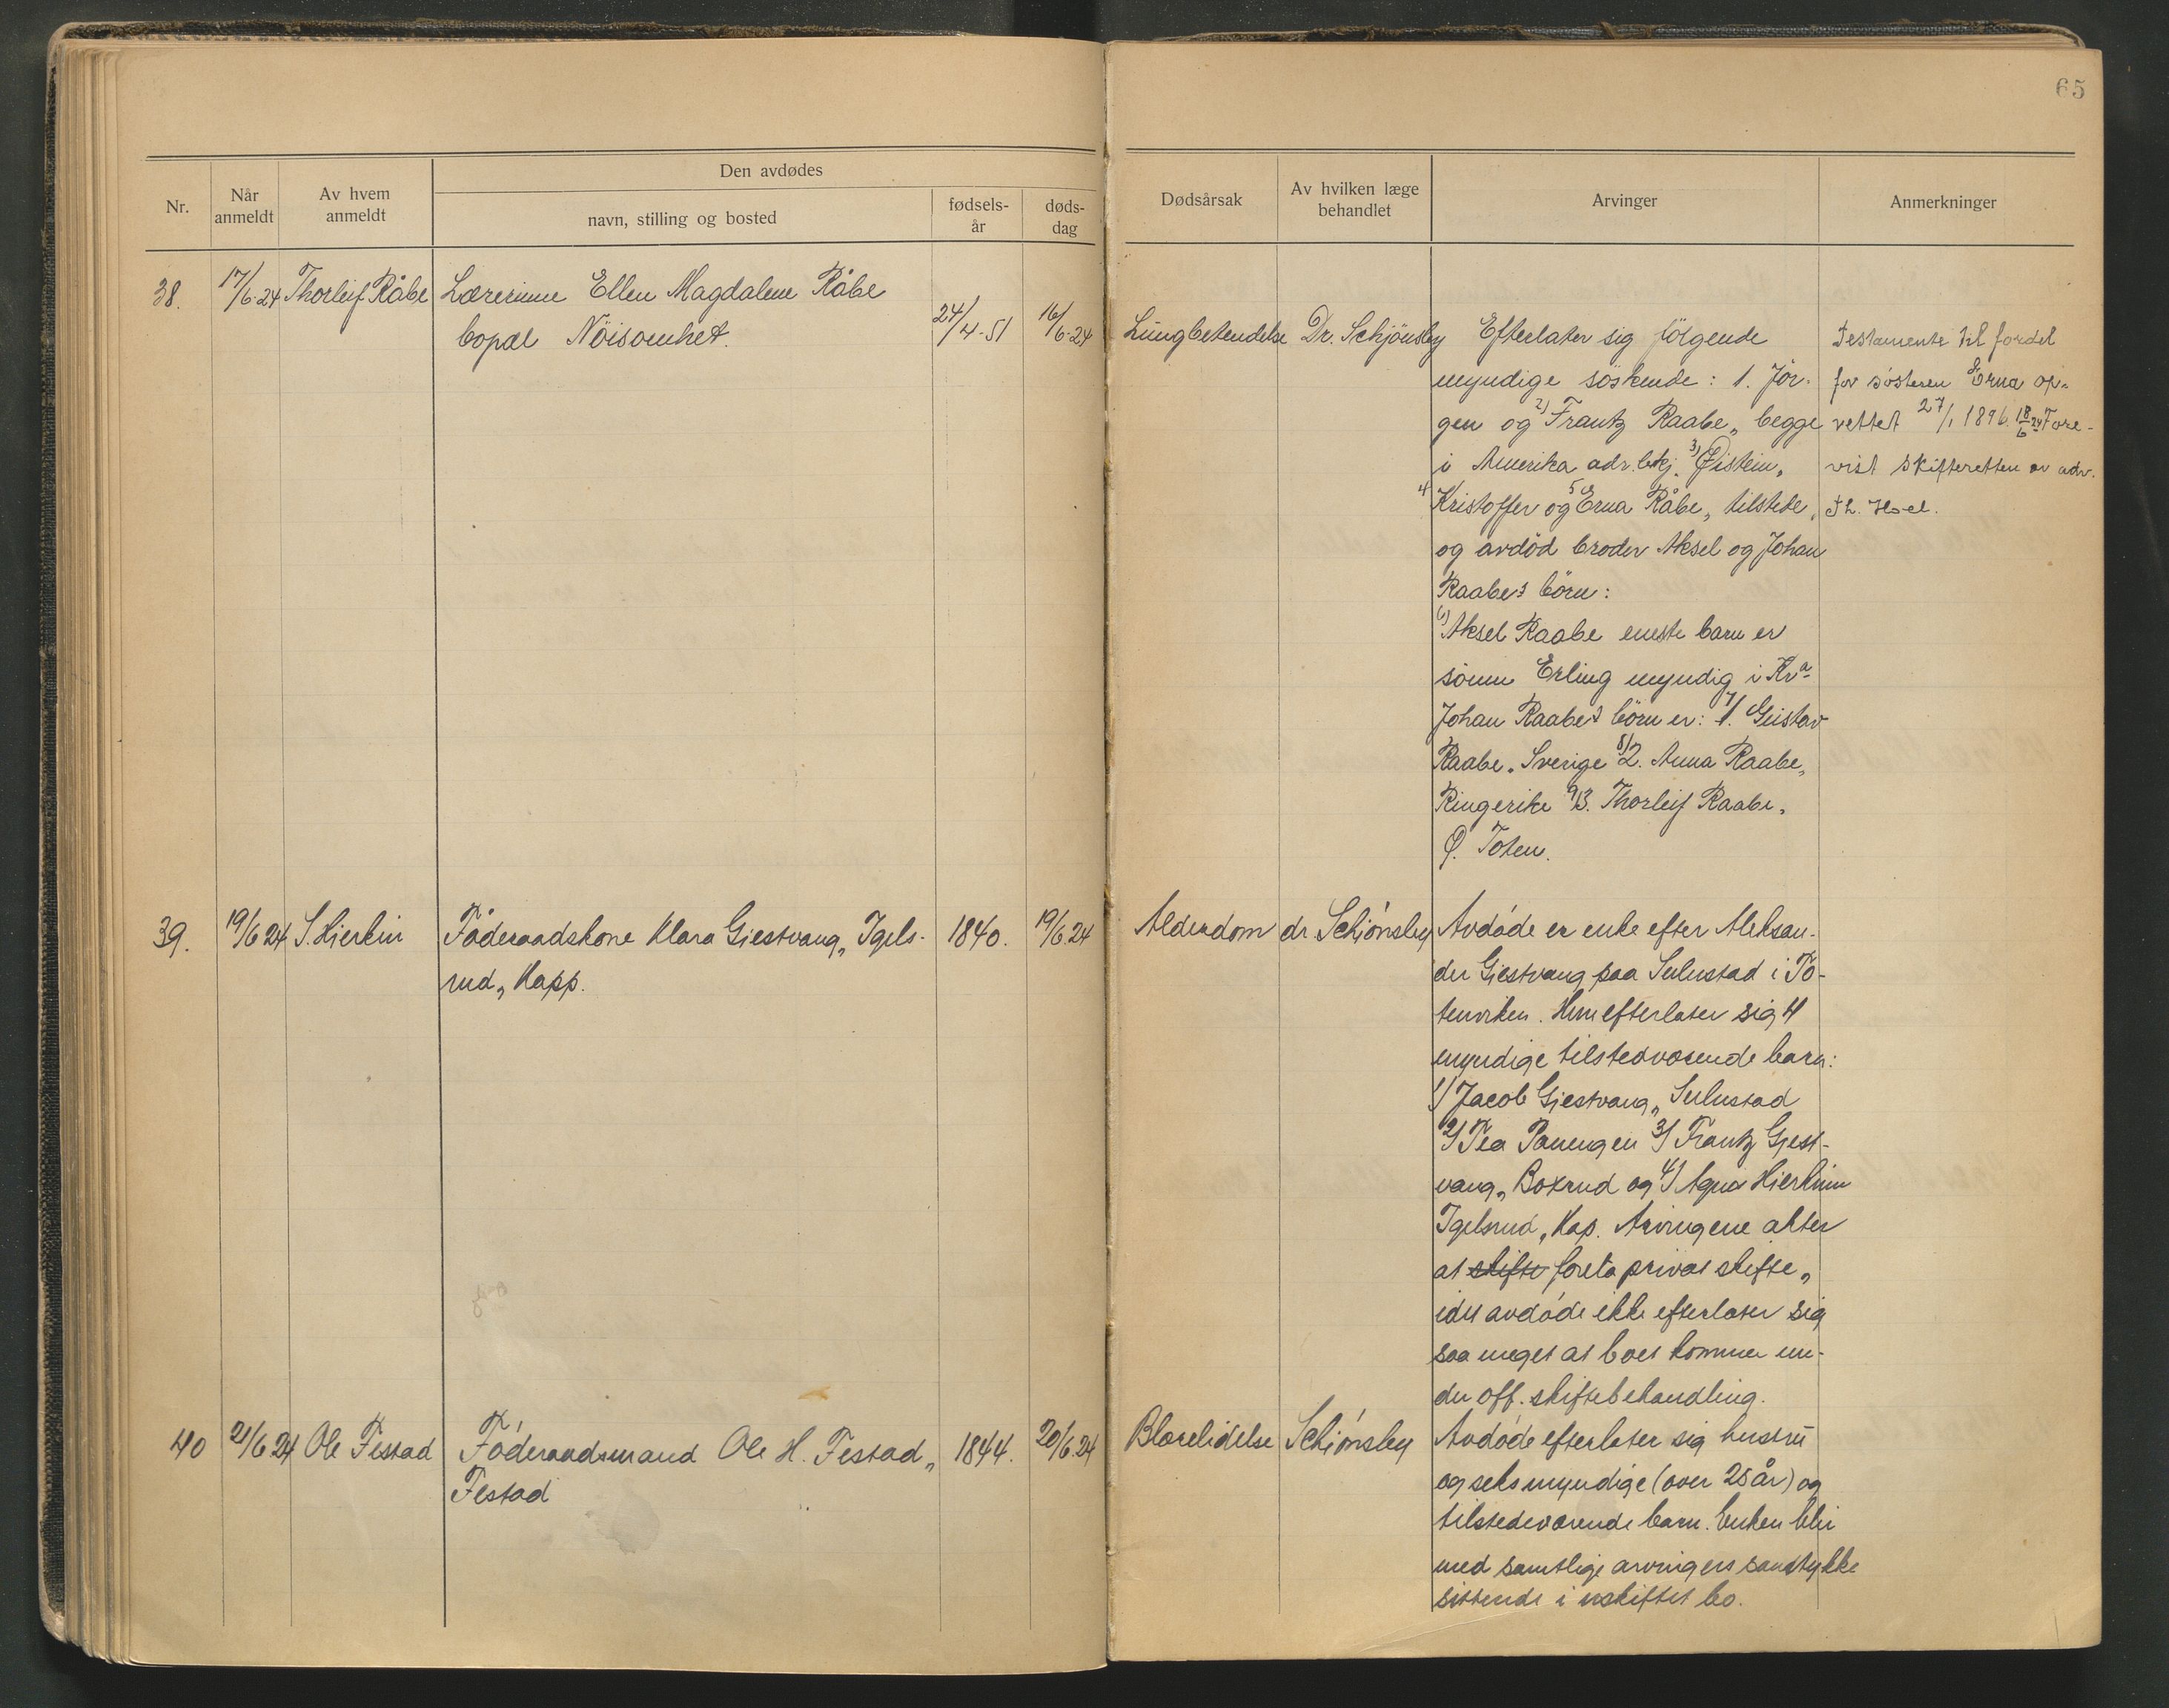 65
Den avdødes
Nr.
Når anmeldt
Av hvem anmeldt
navn, stilling og bosted
fødselsår
dødsdag
Dødsårsak
Av hvilken læge behandlet
Arvinger
Anmerkninger
38. 17/6-24 Thorleif Råbe Lærerinne Ellen Magdalene Råbe
bopæl Nöisomhet. 24/4-51 16/6-24
Lungbetendelse Dr. Schjönsby
Efterlater sig fölgende
myndige söskende: 1. Jör-
gen og 2) Frantz Raabe, begge
i Amerika adr. bekj. 3) Øistein,
4 Kristoffer og 5 Erna Råbe, tilstede,
og avdöd broder Aksel og Johan
Raabes börn:
6) Aksel Raabe eneste barn er
sönn Erling myndig i Kra
Johan Raabes börn er: 7/1. Gustav
Raabe, Sverige 8)2. Anna Raabe,
Ringerike 9)3. Thorleif Raabe,
Ø. Toten.
Testamente til fordel
for sösteren Erna op-
rettet 27/1 1896. 18/6 24 Fore-
vist skifteretten av adv.
Th. Hoel.
39. 19/6 24 S. Hierkin Föderaadskone Klara Giestvang, Igels-
rud, Kapp. 1840. 19/6.24
Alderdom dr. Schjönsby
Avdöde er enke efter Aleksan-
der Giestvang paa Sulustad i To-
tenviken. Hun efterlater sig 4
myndige tilstedværende barn:
1/ Jacob Giestvang, Sulustad
2/ Tea Panengen 3/ Frantz Gjest-
vang, Boxrud og 4) Agna Hierkinn
Igelsrud, Kap. Arvingene akter
at skifte foreta privat skifte,
idet avdöde ikke efterlater sig
saa meget at boet kommer un-
der off. skiftebehandling.
40 21/6 24 Ole Festad Föderaadsmand Ole H. Festad,
Festad 1844. 20/6.24
Blærelidelse Schjönsby
Avdöde efterlater sig hustru
og seks myndige (over 25 år) og
tilstedeværende barn. Enken blir
med samtlige arvingers samtykke
sittende i uskiftet bo.